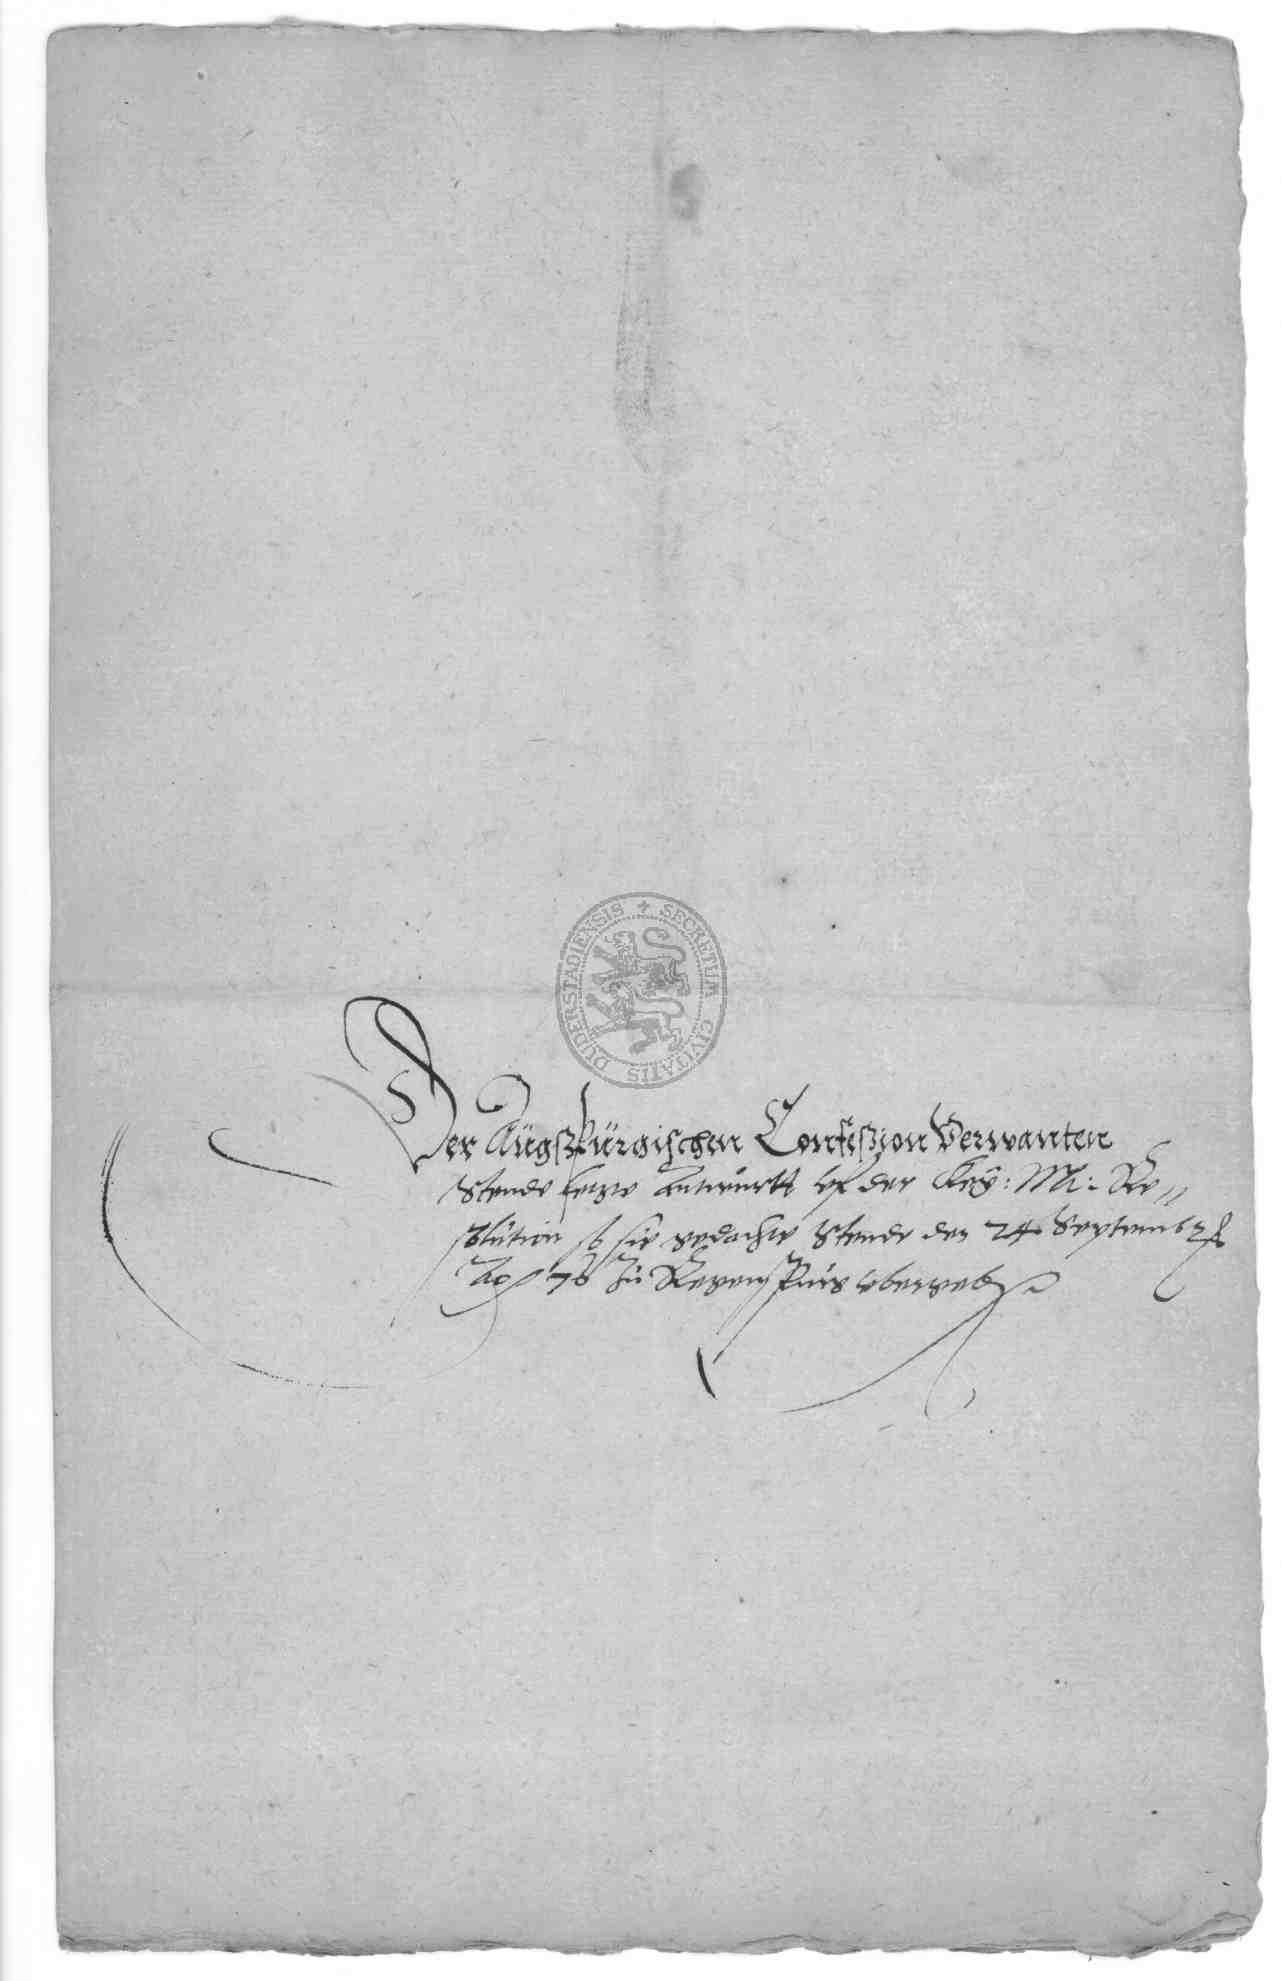 SECRETUM CIVITATIS DUDERSTADIENSIS
Der Augsßpürgischen Confeßion Verwanten
Stende letzte Antwurtt vf der Key: Mt: Re„
solution so sie gedachte Stende den 24 Septembr
Ao 76 zu Regenspurg vbergeben